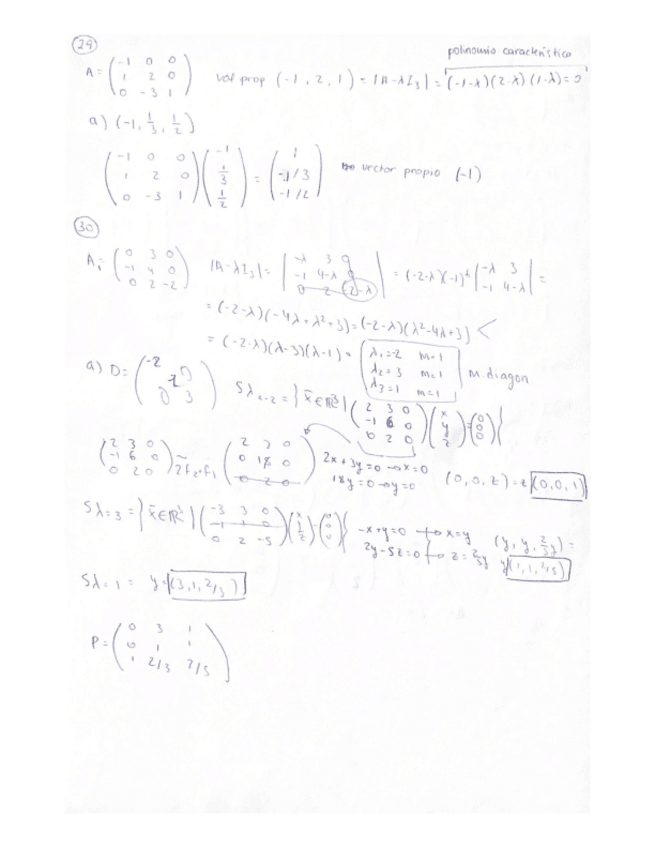 29
polinomio característico
A = ( -1 0 0 / 1 2 0 / 0 -3 1 ) val prop (-1, 2, 1) = |A-λI₃| = (-1-λ)(2-λ)(1-λ)=0
a) (-1, 1/3, 1/2)
( -1 0 0 / 1 2 0 / 0 -3 1 ) ( -1 / 1/3 / 1/2 ) = ( 1 / -1/3 / -1/2 ) vector propio (-1)
30
A: ( 0 3 0 / -1 4 0 / 0 2 -2 ) |A-λI₃| = | -λ 3 0 / -1 4-λ 0 / 0 2 -2-λ | = (-2-λ)(-1)⁶ | -λ 3 / -1 4-λ | =
= (-2-λ)(-4λ+λ²+3) = (-2-λ)(λ²-4λ+3) <
= (-2-λ)(λ-3)(λ-1) = λ₁=-2 m=1
λ₂=3 m=1
λ₃=1 m=1
m. diagon
a) D = ( -2 0 / 1 / 0 3 ) Sλ=-2 = { x̄∈ℝ³ | ( 2 3 0 / -1 6 0 / 0 2 0 ) ( x / y / z ) = ( 0 / 0 / 0 ) }
( 2 3 0 / -1 6 0 / 0 2 0 ) ~ 2f₂+f₁ ( 2 3 0 / 0 15 0 / 0 2 0 ) 2x+3y=0 → x=0
18y=0 → y=0
(0,0,z) = z (0,0,1)
Sλ=3 = { x̄∈ℝ³ | ( -3 3 0 / -1 1 0 / 0 2 -5 ) ( x / y / z ) = ( 0 / 0 / 0 ) } -x+y=0 → x=y
2y-5z=0 → z=2/5y
(y, y, 2/5y) =
y (1,1,2/5)
Sλ=1 = y (3,1,2/3)
P = ( 0 3 1 / 0 1 1 / 1 2/3 2/5 )